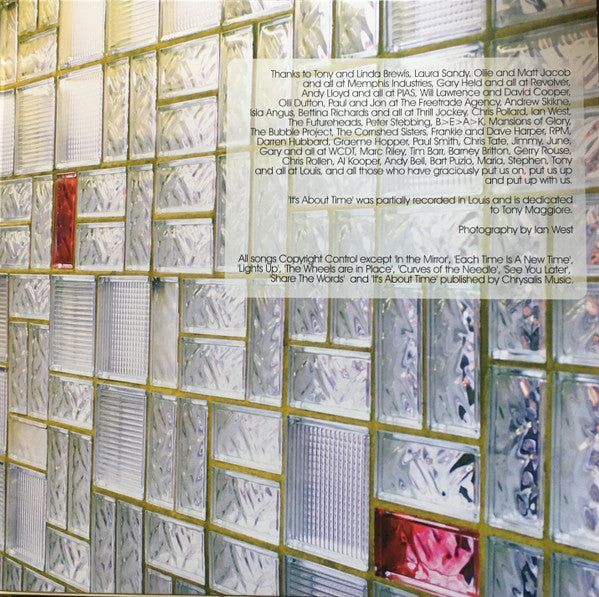 Thanks to Tony and Linda Brewis, Laura Sandy, Ollie and Matt Jacob
and all at Memphis Industries, Gary Held and all at Revolver,
Andy Lloyd and all at PIAS, Will Lawrence and David Cooper,
Olli Dutton, Paul and Jon at The Freetrade Agency, Andrew Skikne,
Isla Angus, Bettina Richards and all at Thrill Jockey, Chris Pollard, Ian West,
The Futureheads, Peter Stebbing, B>E>A>K, Mansions of Glory,
The Bubble Project, The Cornshed Sisters, Frankie and Dave Harper, RPM,
Darren Hubbard, Graeme Hopper, Paul Smith, Chris Tate, Jimmy, June,
Gary and all at WCDT, Marc Riley, Tim Barr, Barney Britton, Gerry Rouse,
Chris Rollen, Al Kooper, Andy Bell, Bart Puzio, Maria, Stephen, Tony
and all at Louis, and all those who have graciously put us on, put us up
and put up with us.
'It's About Time' was partially recorded in Louis and is dedicated
to Tony Maggiore.
Photography by Ian West
All songs Copyright Control except 'In the Mirror', 'Each Time Is A New Time',
'Lights Up', 'The Wheels are in Place', 'Curves of the Needle', 'See You Later',
'Share The Words' and 'It's About Time' published by Chrysalis Music.